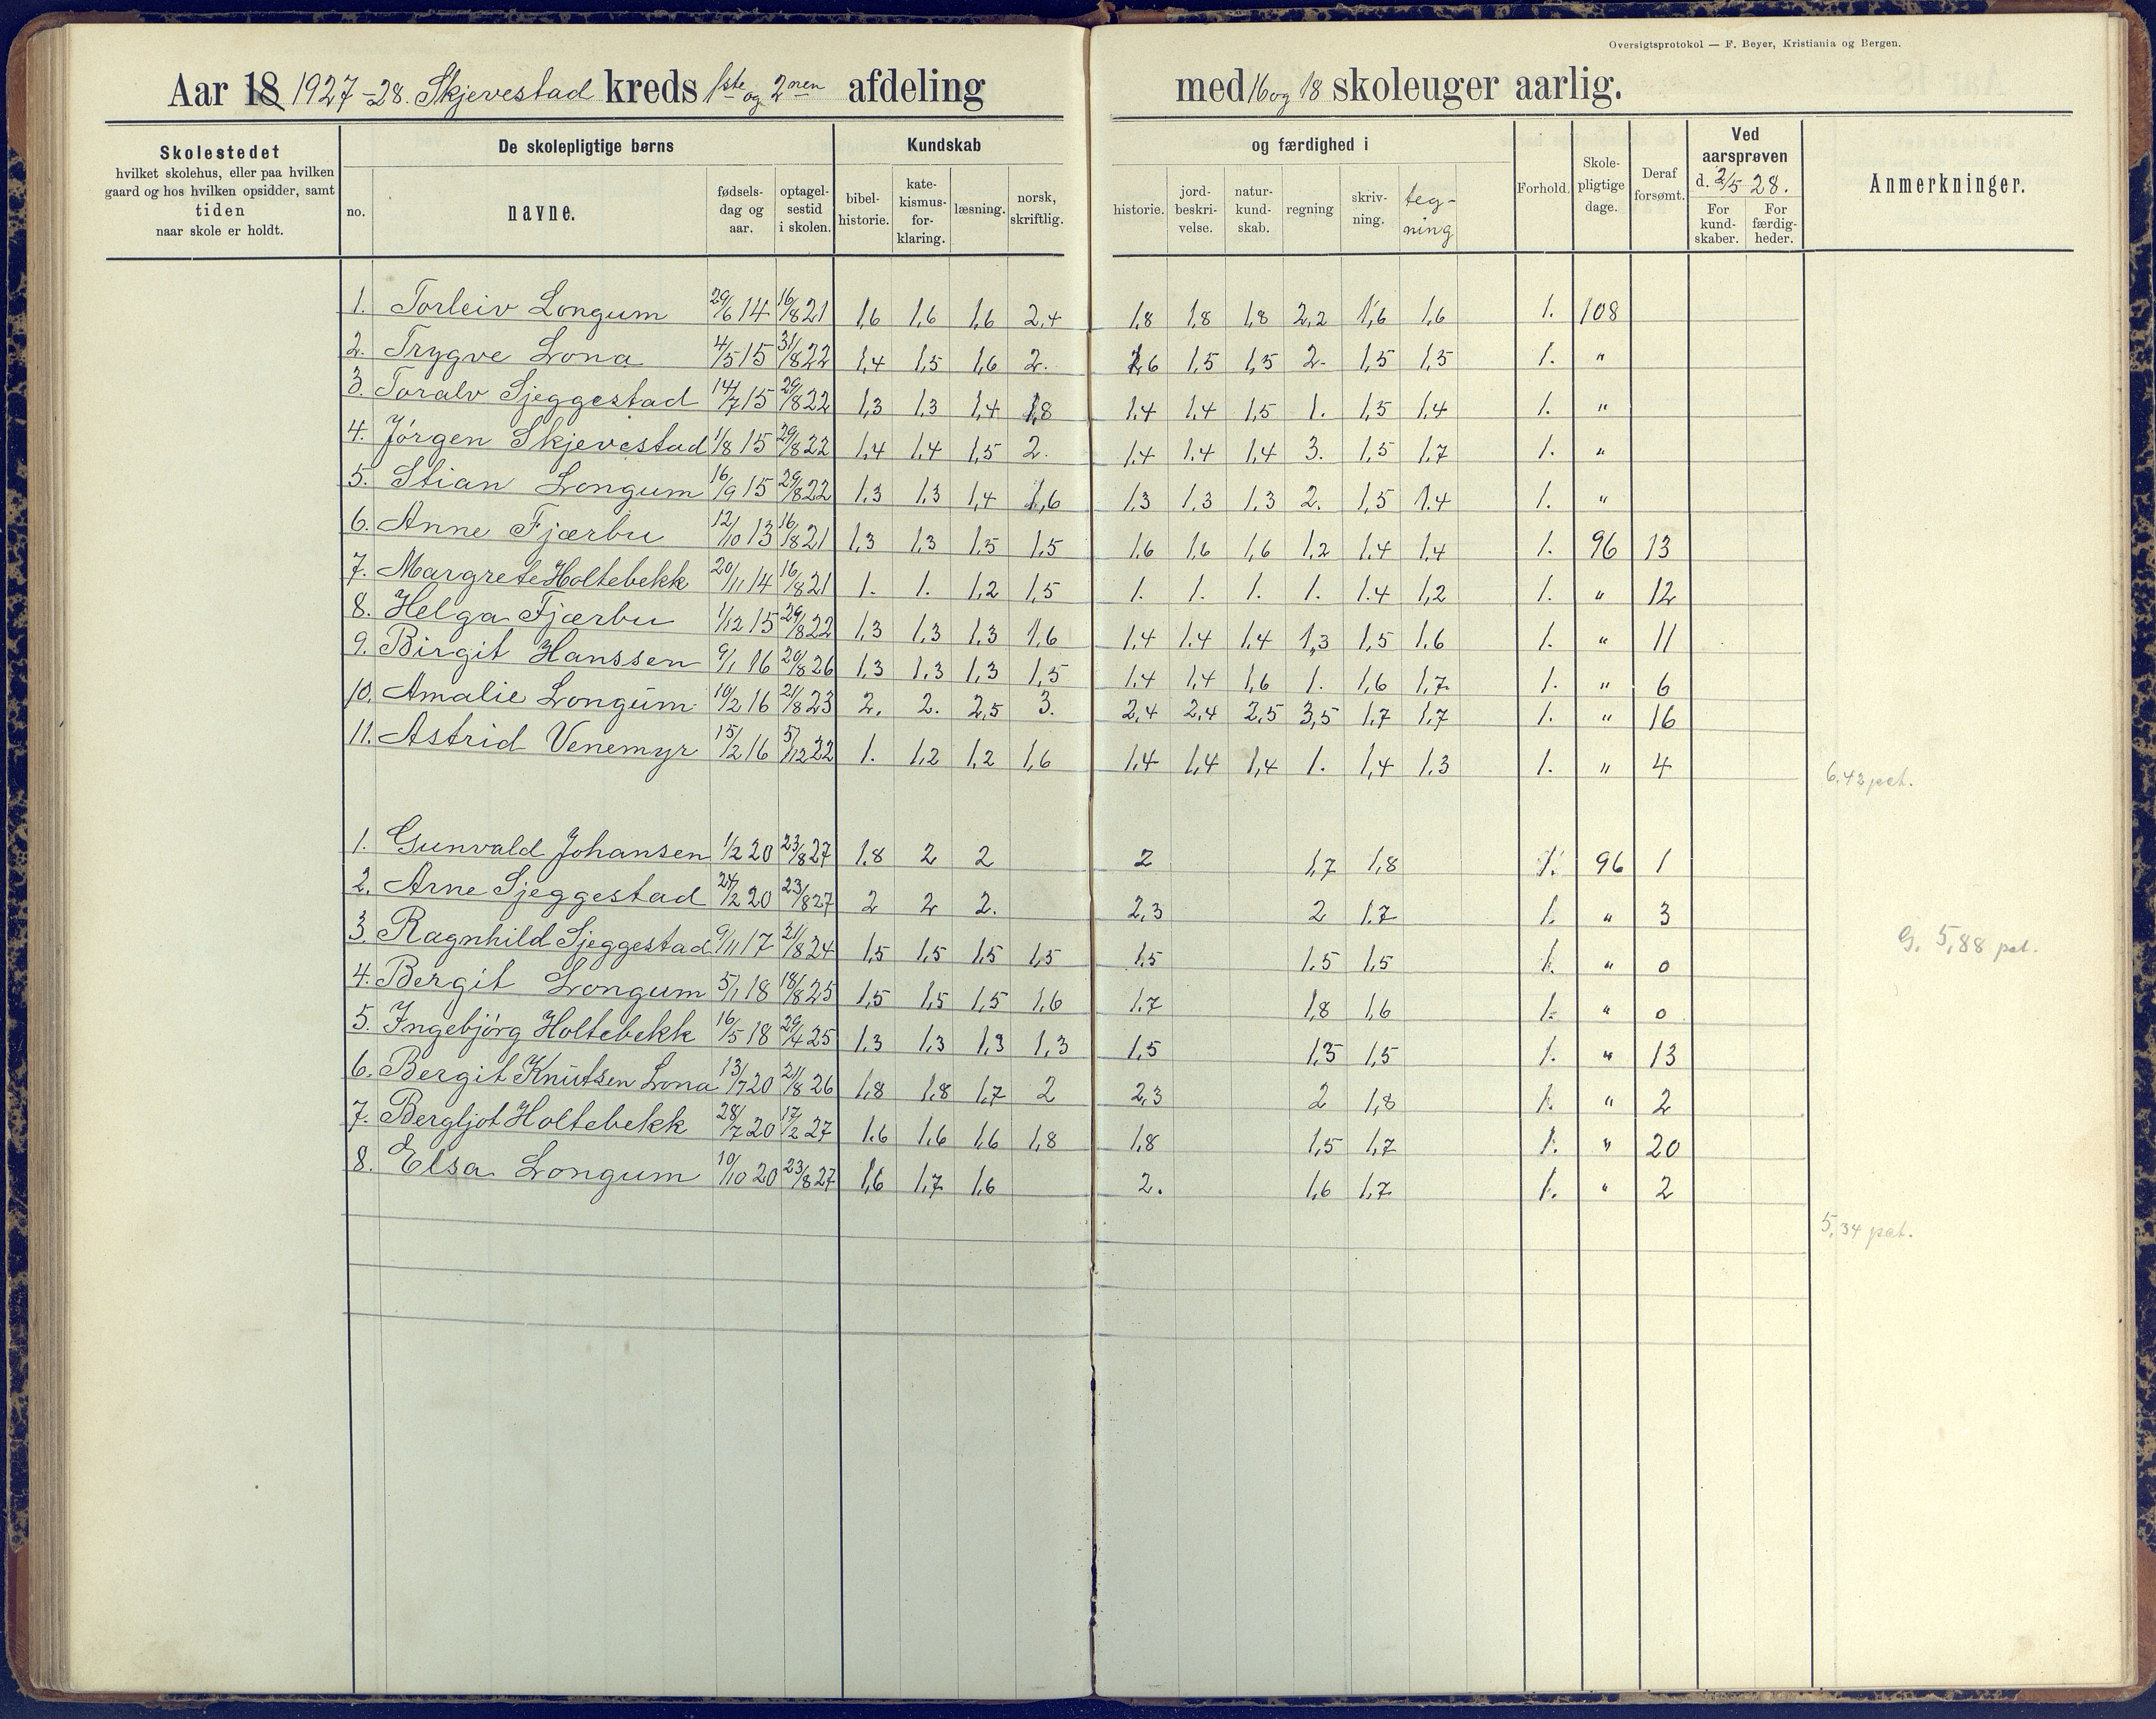 Oversigtsprotokol — F. Beyer, Kristiania og Bergen.
Aar 18 1927-28. Skjevestad kreds 1ste og 2nen afdeling med 16 og 18 skoleuger aarlig.
Skolestedet
hvilket skolehus, eller paa hvilken
gaard og hos hvilken opsidder, samt
tiden
naar skole er holdt.
De skolepligtige børns
no.
navne.
fødsels-
dag og
aar.
optagel-
sestid
i skolen.
Kundskab
bibel-
historie.
kate-
kismus-
for-
klaring.
læsning.
norsk,
skriftlig.
og færdighed i
historie.
jord-
beskri-
velse.
natur-
kund-
skab.
regning
skriv-
ning.
teg-
ning
Forhold.
Skole-
pligtige
dage.
Deraf
forsømt.
Ved
aarsprøven
d. 2/5 28.
For
kund-
skaber.
For
færdig-
heder.
Anmerkninger.
1. Torleiv Longum 29/6 14 16/8 21 1,6 1,6 1,6 2,4 1,8 1,8 1,8 2,2 1,6 1,6 1. 108
2. Trygve Lona 4/5 15 31/8 22 1,4 1,5 1,6 2. 1,6 1,5 1,5 2. 1,5 1,5 1. "
3. Toralv Sjeggestad 14/7 15 29/8 22 1,3 1,3 1,4 1,8 1,4 1,4 1,5 1. 1,5 1,4 1. "
4. Jørgen Skjevestad 1/8 15 29/8 22 1,4 1,4 1,5 2. 1,4 1,4 1,4 3. 1,5 1,7 1. "
5. Stian Longum 16/9 15 29/8 22 1,3 1,3 1,4 1,6 1,3 1,3 1,3 2. 1,5 1.4 1. "
6. Anne Fjærbu 12/10 13 16/8 21 1,3 1,3 1,5 1,5 1,6 1,6 1,6 1,2 1,4 1,4 1. 96 13
7. Margrete Holtebekk 20/11 14 16/8 21 1. 1. 1,2 1,5 1. 1. 1. 1. 1.4 1,2 1. " 12
8. Helga Fjærbu 1/12 15 29/8 22 1,3 1,3 1,3 1,6 1,4 1.4 1,4 1,3 1,5 1,6 1. " 11
9. Birgit Hanssen 9/1 16 20/8 26 1,3 1,3 1,3 1,5 1,4 1,4 1,6 1. 1,6 1,7 1. " 6
10. Amalie Longum 10/2 16 21/8 23 2. 2. 2,5 3. 2,4 2,4 2,5 3,5 1,7 1,7 1. " 16
11. Astrid Venemyr 15/2 16 5/12 22 1. 1,2 1,2 1,6 1,4 1,4 1,4 1. 1,4 1,3 1. " 4
6,42 pct.
1. Gunvald Johansen 1/2 20 23/8 27 1.8 2 2 2 1,7 1,8 1. 96 1
2. Arne Sjeggestad 24/2 20 23/8 27 2 2 2. 2,3 2 1.7 1. " 3
3. Ragnhild Sjeggestad 9/11 17 21/8 24 1,5 1,5 1,5 1,5 1,5 1.5 1,5 1. " 0
G. 5,88 pct.
4. Bergit Longum 5/1 18 18/8 25 1,5 1,5 1,5 1,6 1.7 1,8 1,6 1. " 0
5. Ingebjørg Holtebekk 16/5 18 29/4 25 1,3 1,3 1,3 1,3 1,5 1,5 1,5 1. " 13
6. Bergit Knutsen Lona 13/7 20 21/8 26 1,8 1,8 1,7 2 2,3 2 1,8 1. " 2
7. Bergljot Holtebekk 28/7 20 17/2 27 1.6 1,6 1,6 1,8 1,8 1,5 1,7 1. " 20
8. Elsa Longum 10/10 20 23/8 27 1,6 1,7 1,6 2. 1,6 1,7 1. " 2
5,34 pct.